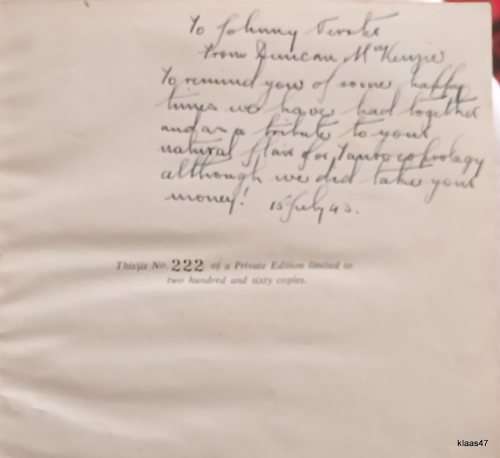 To Johnny
from Duncan McKenzie
To remind you of some happy
times we have had together
and as a tribute to your
natural flair for Tauroscatology
although we did take your
money! 15 July 43.
This is No. 222 of a Private Edition limited to
two hundred and sixty copies.
klaas47